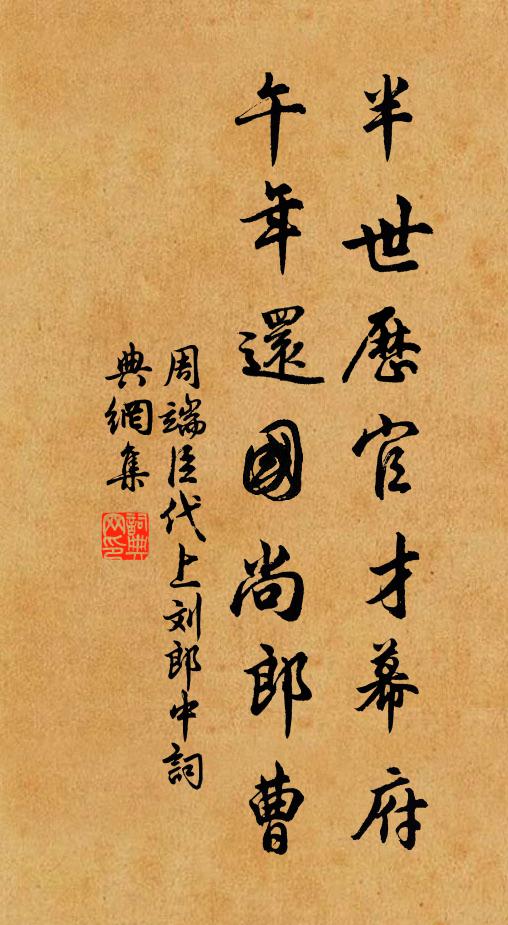 半世歷官才幕府
午年還國尚郎曹
周端臣代上刘郎中詞
典網集
詞典網印